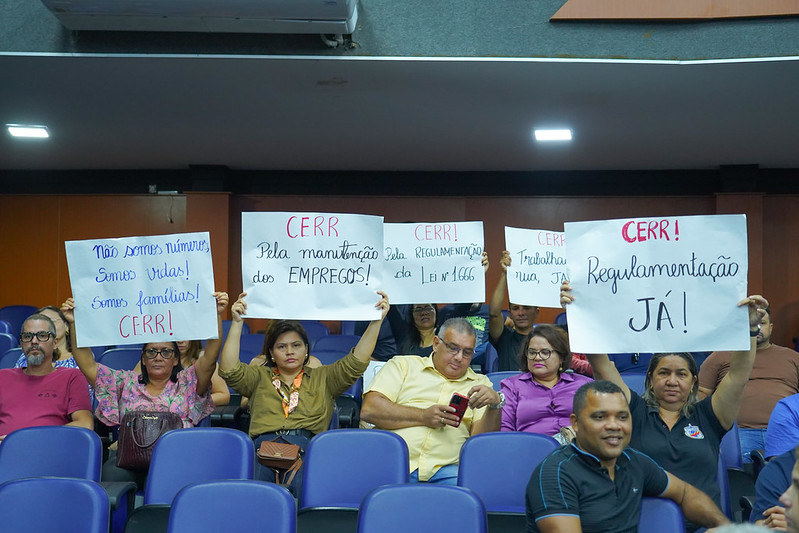 Não somos números,
Somos vidas!
Somos famílias!
CERR!
CERR
Pela manutenção
dos EMPREGOS!
CERR!
Pela REGULAMENTAÇÃO
da LEI Nº 1.666
CERR
Trabalha
rua, já
CERR!
Regulamentação
JÁ!